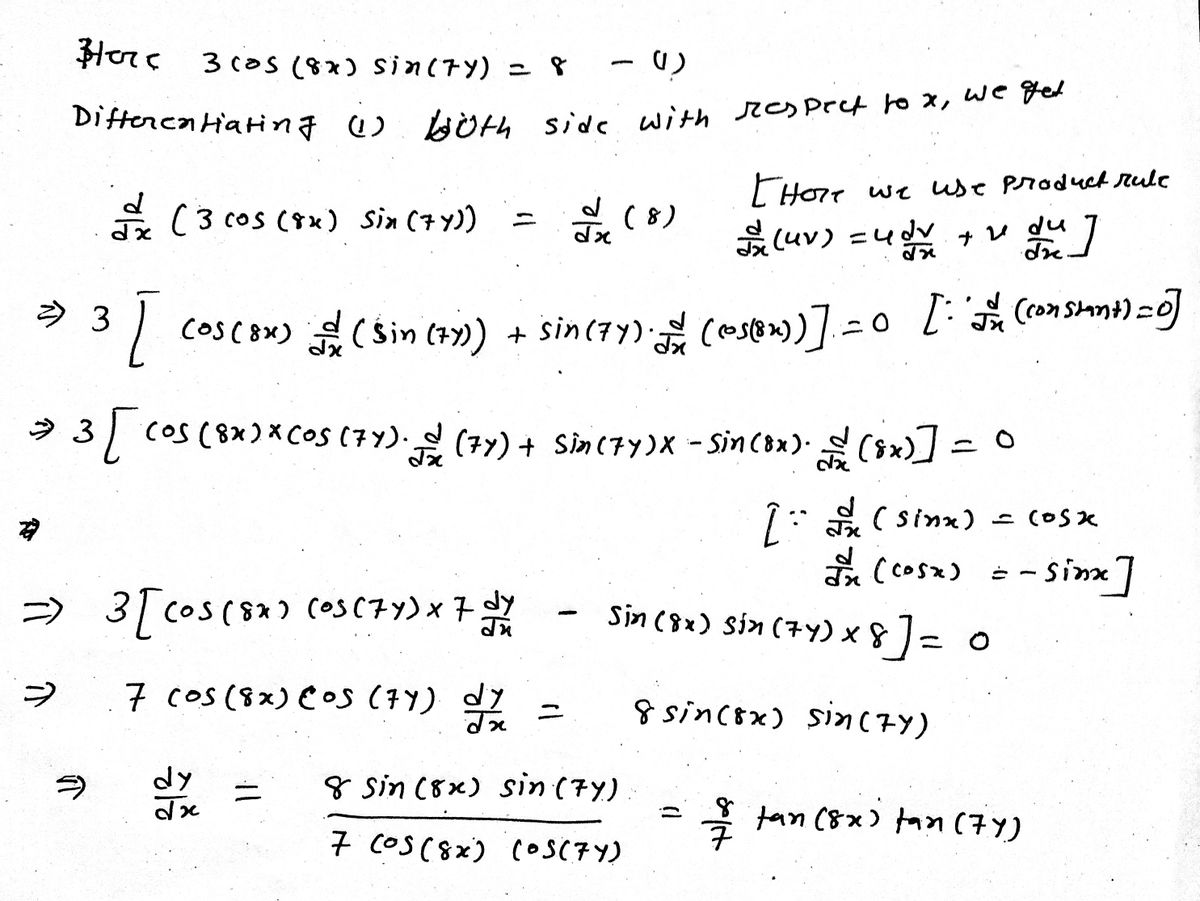 Here 3 cos (8x) sin(7y) = 8 — (1)
Differentiating (1) both side with respect to x, we get
d/dx (3 cos (8x) sin (7y)) = d/dx (8) [Here we use product rule
d/dx (uv) = u dv/dx + v du/dx]
⇒ 3 [cos(8x) d/dx (sin (7y)) + sin(7y)· d/dx (cos(8x))] = 0 [∵ d/dx (constant) = 0]
⇒ 3 [cos (8x) × cos (7y)· d/dx (7y) + sin(7y) × - sin(8x)· d/dx (8x)] = 0
[∵ d/dx (sinx) = cosx
d/dx (cosx) = - sinx]
⇒ 3 [cos(8x) cos(7y) × 7 dy/dx - sin(8x) sin(7y) × 8] = 0
⇒ 7 cos(8x) cos (7y) dy/dx = 8 sin(8x) sin(7y)
⇒ dy/dx = 8 sin (8x) sin (7y) / 7 cos(8x) cos(7y) = 8/7 tan (8x) tan (7y)